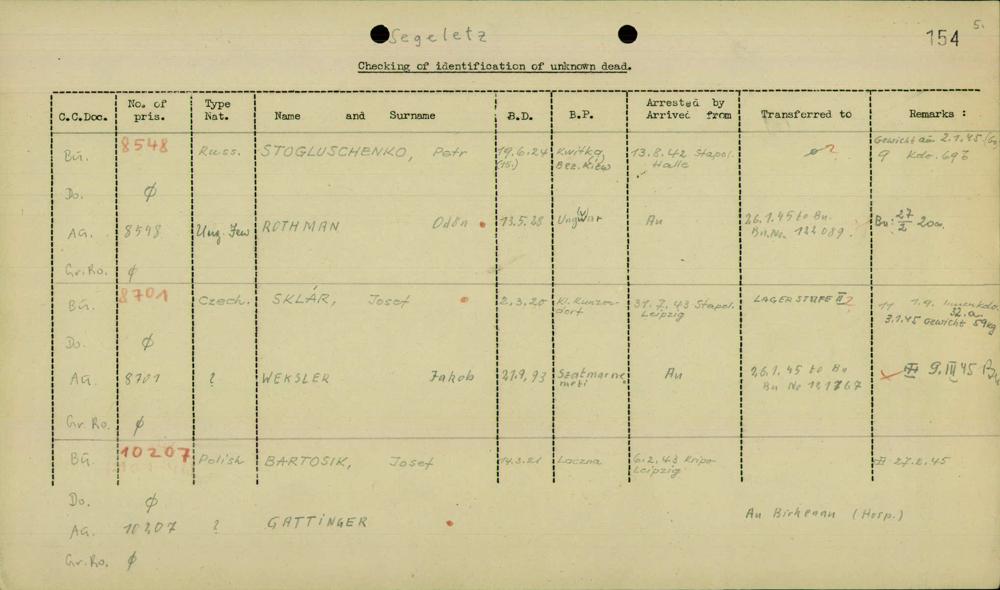 Segeletz
154
5.
Checking of identification of unknown dead.
C.C.Doc. No. of pris. Type Nat. Name and Surname B.D. B.P. Arrested by Arrived from Transferred to Remarks :
Bu. 8548 Russ. STOGLUSCHENKO, Petr 19.6.24 Kwitka, 13.8.42 Stapol. Gewicht am 2.1.45
(15.) Bez. Kiew Halle 9 Kdo.
Do. ϕ
AG. 8548 Ung. Jew ROTHMAN Odön 13.5.28 Ungwar Au 26.1.45 to Bu. Bu: 27/2
(V) Bu.No. 122089.
Gr.Ro. ϕ
BG. 8701 Czech. SKLÁR, Josef 2.3.20 Kl. Kunzendorf 31.7.43 Stapol. LAGERSTUFE II ? 11 1.9. Innenkdo.
Leipzig 3.1.45 Gewicht 59kg
Do. ϕ
AG. 8701 ? WEKSLER Jakob 21.9.93 Szatmarnemeti Au 26.1.45 to Bu 9.III 45 Bu
Bu No 121767
Gr. Ro. ϕ
BG. 10207 Polish BARTOSIK, Josef 14.3.21 Laczna 6.2.43 Kripo 27.2.45
Leipzig
Do. ϕ
AG. 10207 ? GATTiNGER Au Birkenau (Hosp.)
Gr.Ro. ϕ